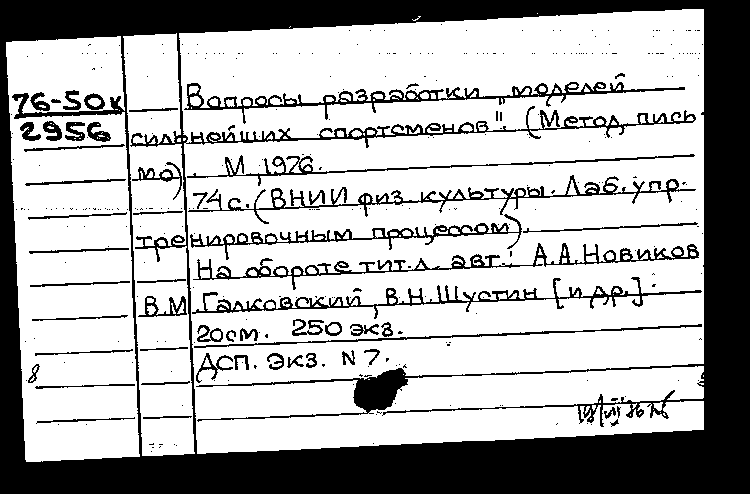 76-50к
2956
Вопросы разработки „моделей
сильнейших спортсменов". (Метод. пись-
мо). М., 1976.
74 с. (ВНИИ физ. культуры. Лаб. упр.
тренировочным процессом).
На обороте тит. л. авт.: А.А.Новиков
В.М.Галковский, В.Н.Шустин [и др.].
20см. 250 экз.
ДСП. Экз. N 7.
8